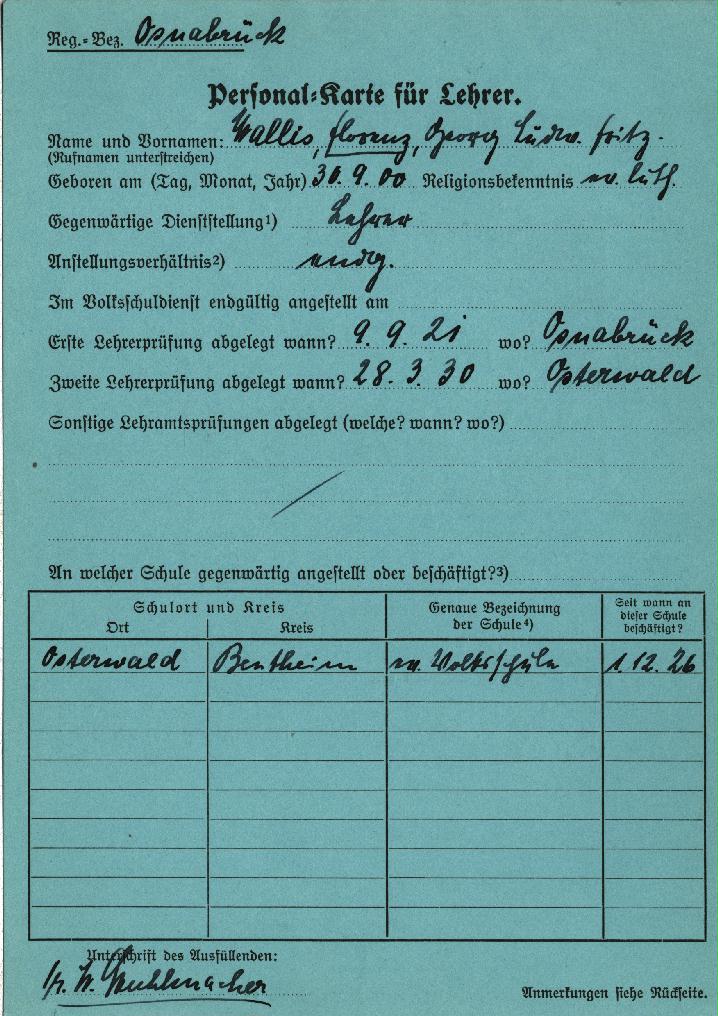 Reg.-Bez. Osnabrück
Personal-Karte für Lehrer.
Name und Vornamen: Wallis, Florenz, Georg Ludw. Fritz.
(Rufnamen unterstreichen)
Geboren am (Tag, Monat, Jahr) 30.9.00 Religionsbekenntnis ev. luth.
Gegenwärtige Dienststellung1) Lehrer
Anstellungsverhältnis2) endg.
Im Volksschuldienst endgültig angestellt am
Erste Lehrerprüfung abgelegt wann? 9.9.21 wo? Osnabrück
Zweite Lehrerprüfung abgelegt wann? 28.3.30 wo? Osterwald
Sonstige Lehramtsprüfungen abgelegt (welche? wann? wo?)
An welcher Schule gegenwärtig angestellt oder beschäftigt?3)
Schulort und Kreis
Ort Kreis
Genaue Bezeichnung
der Schule4)
Seit wann an
dieser Schule
beschäftigt?
Osterwald Bentheim ev. Volksschule 1.12.26
Unterschrift des Ausfüllenden:
Anmerkungen siehe Rückseite.